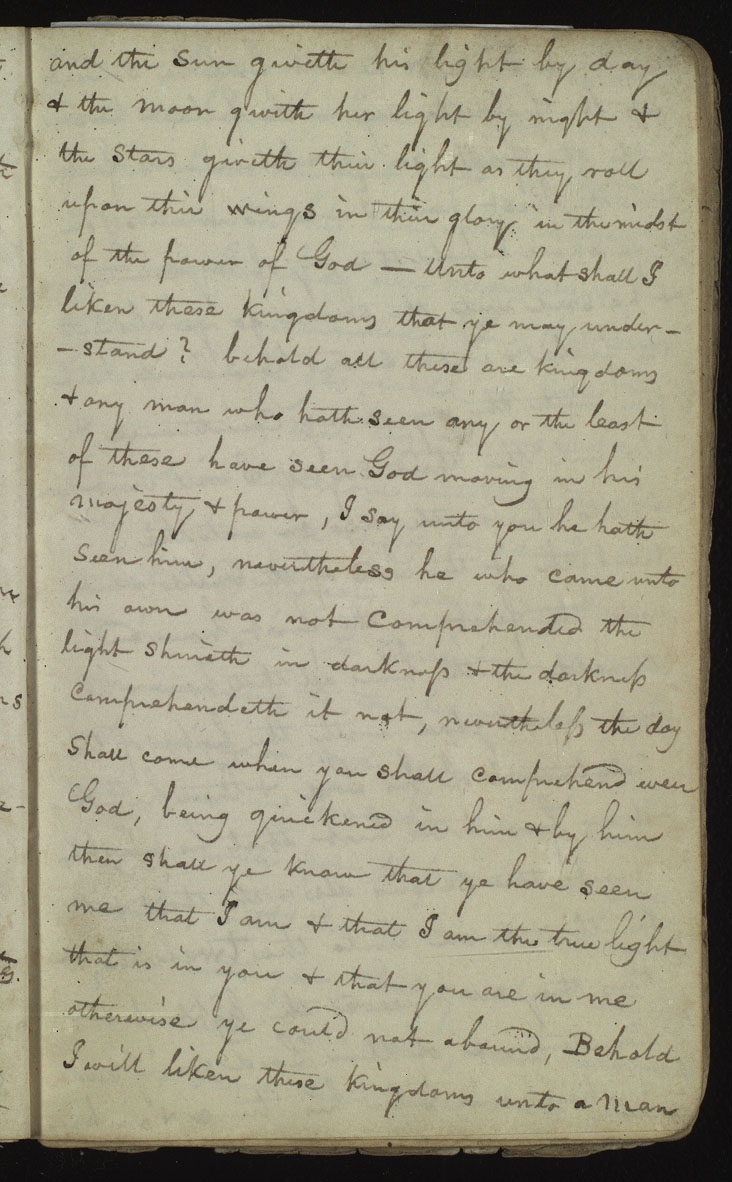 and the Sun giveth his light by day
& the moon giveth her light by night &
the Stars giveth their light as they roll
upon their wings in their glory in the midst
of the power of God — Unto what shall I
liken these Kingdoms that ye may under-
-stand? behold all these are kingdoms
& any man who hath seen any or the least
of these have seen God moving in his
Majesty & power, I say unto you he hath
Seen him, nevertheless he who came unto
his own was not Comprehended the
light Shineth in darkness & the darkness
Comprehendeth it not, nevertheless the day
Shall come when you shall comprehend even
God, being quickened in him & by him
then shall ye know that ye have seen
me that I am & that I am the true light
that is in you & that you are in me
otherwise ye could not abound, Behold
I will liken these Kingdoms unto a Man